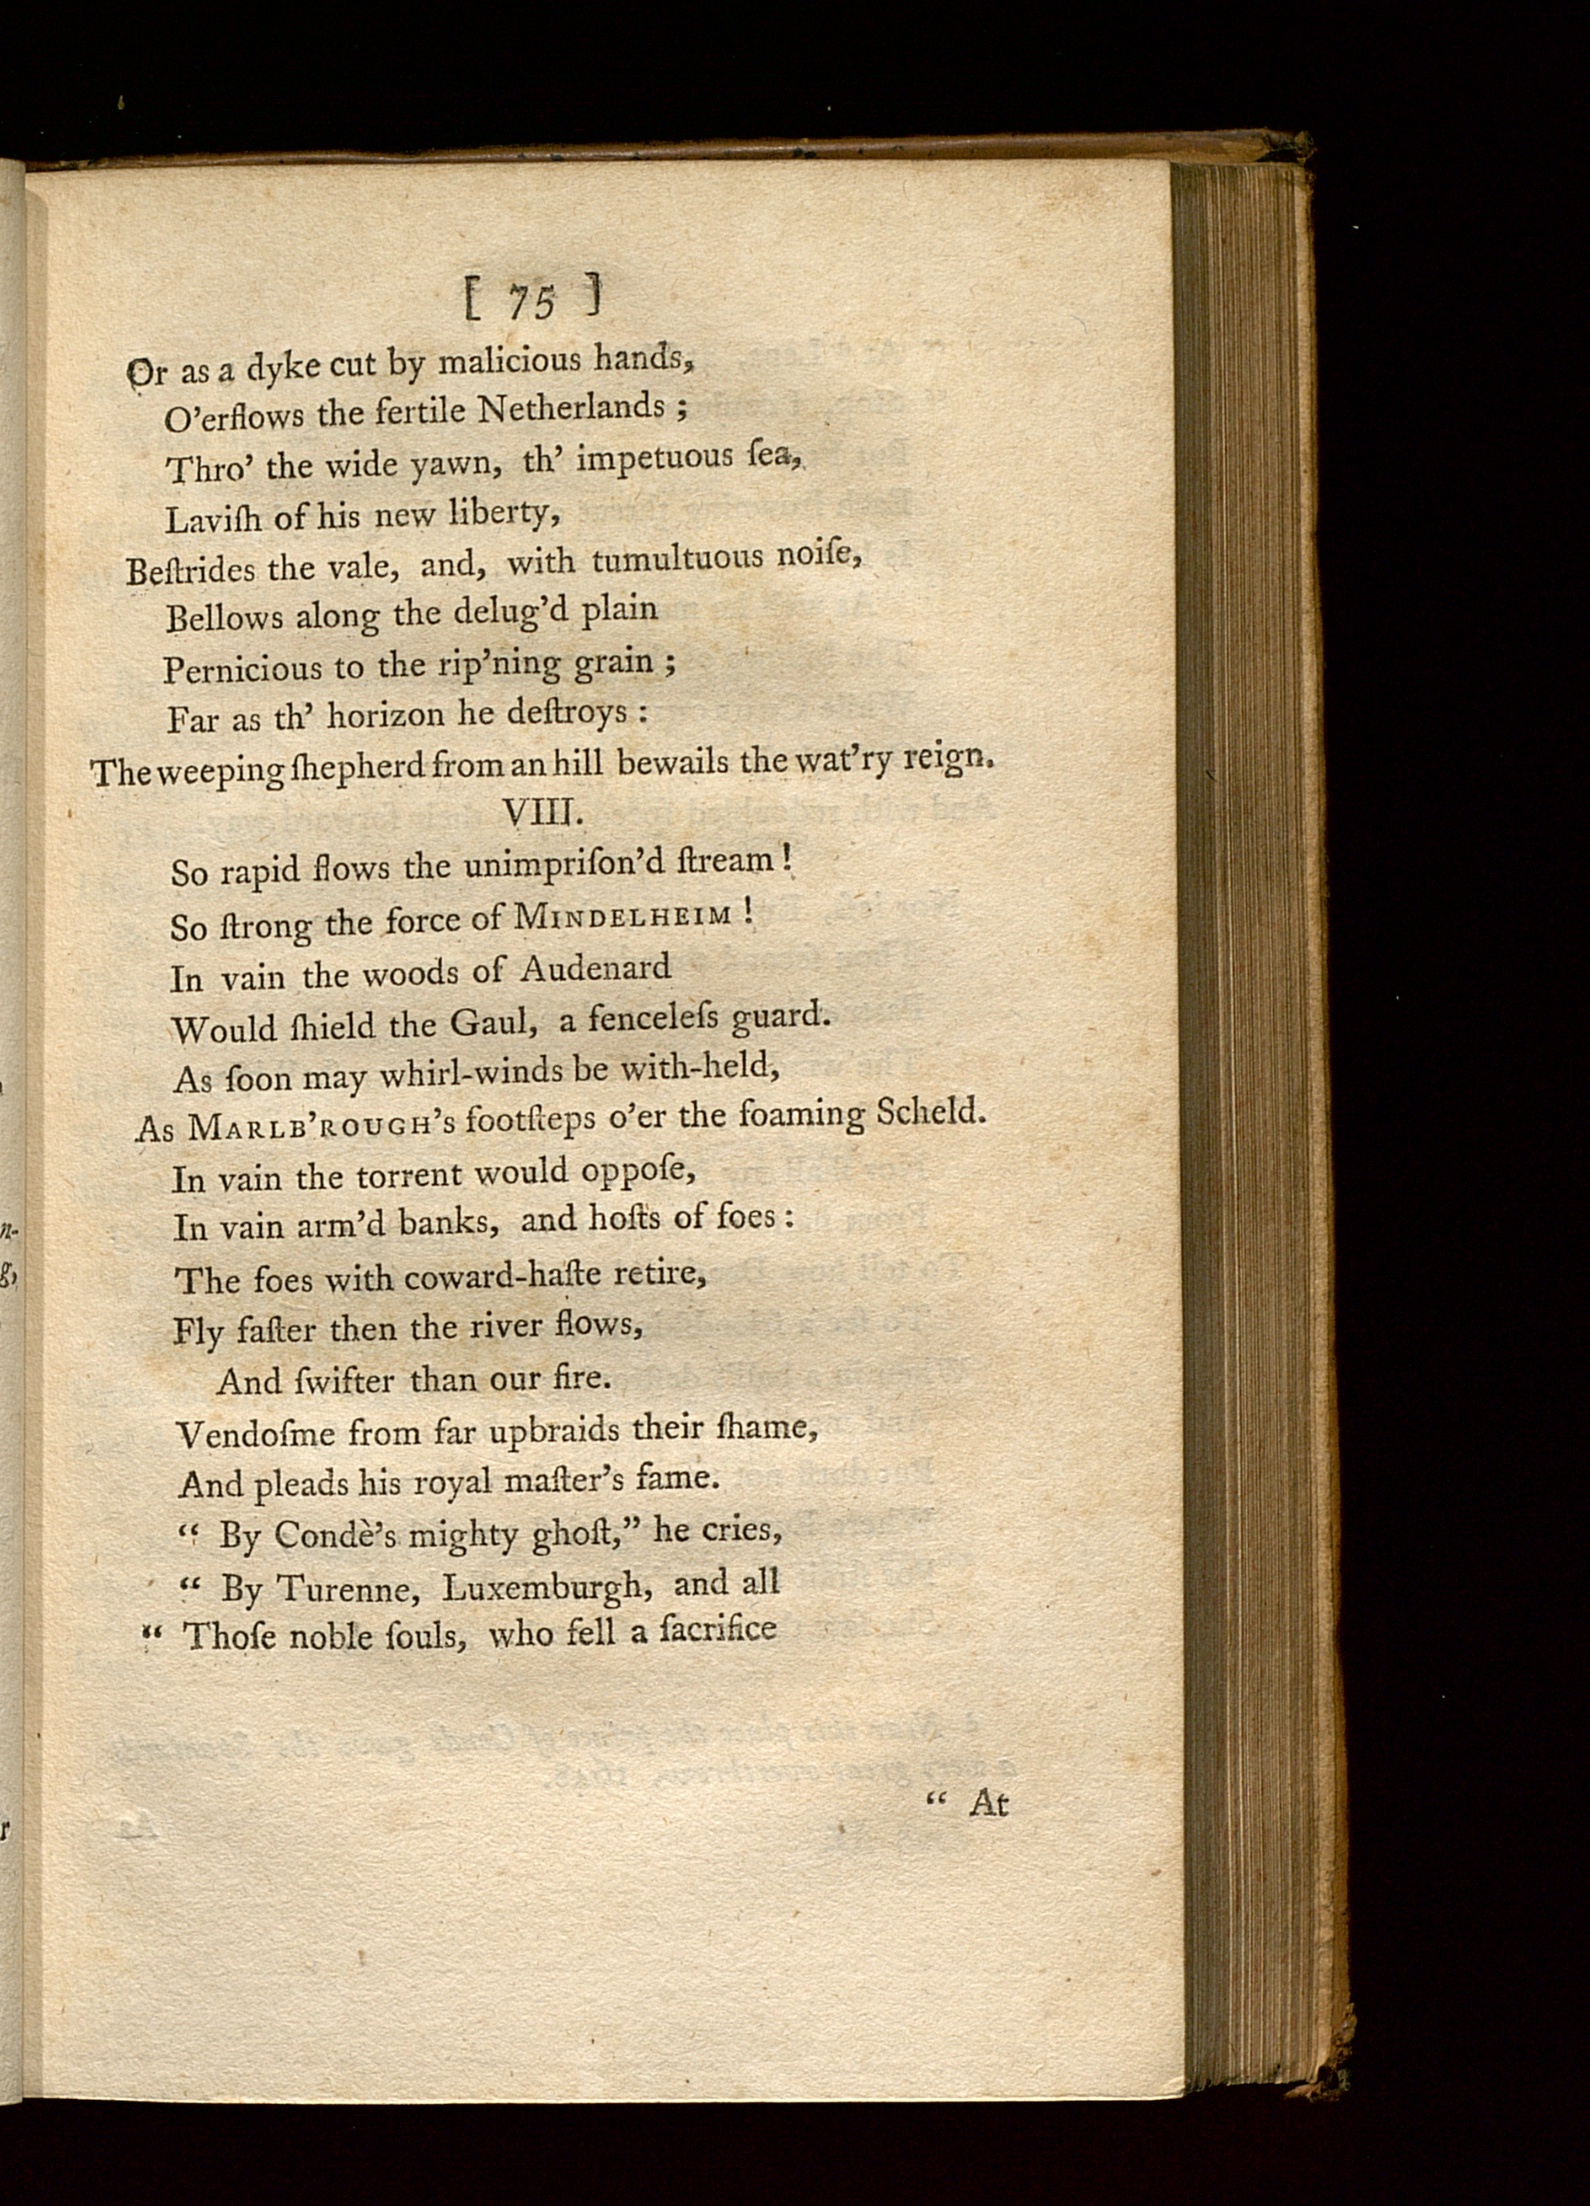 [ 75 ]
Or as a dyke cut by malicious hands,
O'erflows the fertile Netherlands ;
Thro' the wide yawn, th' impetuous ſea,
Laviſh of his new liberty,
Beſtrides the vale, and, with tumultuous noiſe,
Bellows along the delug'd plain
Pernicious to the rip'ning grain ;
Far as th' horizon he deſtroys :
The weeping ſhepherd from an hill bewails the wat'ry reign.
VIII.
So rapid flows the unimpriſon'd ſtream !
So ſtrong the force of MINDELHEIM !
In vain the woods of Audenard
Would ſhield the Gaul, a fenceleſs guard.
As ſoon may whirl-winds be with-held,
As MARLB'ROUGH's footſteps o'er the foaming Scheld.
In vain the torrent would oppoſe,
In vain arm'd banks, and hoſts of foes :
The foes with coward-haſte retire,
Fly faſter then the river flows,
And ſwifter than our fire.
Vendoſme from far upbraids their ſhame,
And pleads his royal maſter's fame.
“ By Condè's mighty ghoſt,” he cries,
“ By Turenne, Luxemburgh, and all
“ Thoſe noble ſouls, who fell a ſacrifice
“ At
n-
g,
r